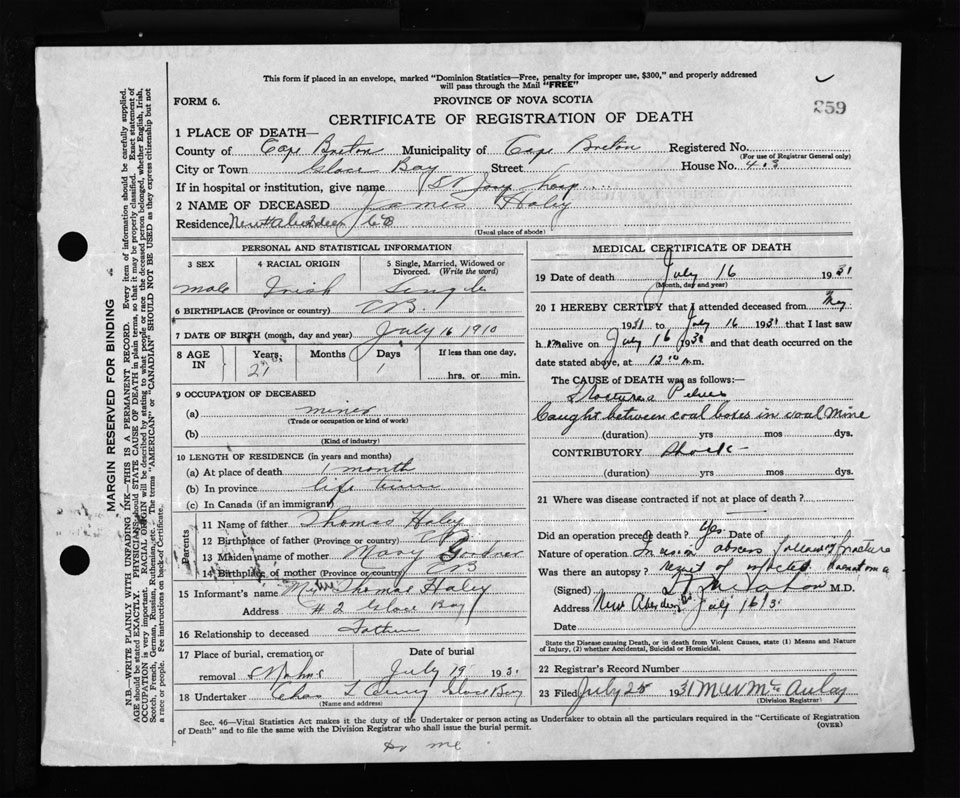 This form if placed in an envelope, marked "Dominion Statistics—Free, penalty for improper use, $300," and properly addressed
will pass through the Mail "FREE"
FORM 6.
PROVINCE OF NOVA SCOTIA
259
CERTIFICATE OF REGISTRATION OF DEATH
1 PLACE OF DEATH—
County of Cape Breton Municipality of Cape Breton Registered No.
(For use of Registrar General only)
City or Town Glace Bay Street House No. 403
If in hospital or institution, give name St Josp hosp
2 NAME OF DECEASED James Haley
Residence New Aberdeen CB
(Usual place of abode)
PERSONAL AND STATISTICAL INFORMATION
3 SEX 4 RACIAL ORIGIN 5 Single, Married, Widowed or
Divorced. (Write the word)
male Irish Single
6 BIRTHPLACE (Province or country) C B.
7 DATE OF BIRTH (month, day and year) July 16 1910
8 AGE IN Years Months Days If less than one day,
21 1 hrs. or min.
9 OCCUPATION OF DECEASED
(a) miner
(Trade or occupation or kind of work)
(b)
(Kind of industry)
10 LENGTH OF RESIDENCE (in years and months)
(a) At place of death 1 month
(b) In province life time
(c) In Canada (if an immigrant)
Parents
11 Name of father Thomas Haley
12 Birthplace of father (Province or country) CB
13 Maiden name of mother Mary
14 Birthplace of mother (Province or country) CB
15 Informant's name Thomas Haley
Address #2 Glace Bay
16 Relationship to deceased Father
17 Place of burial, cremation or
removal
Date of burial
July 19 1931
18 Undertaker Chas Glace Bay
(Name and address)
MEDICAL CERTIFICATE OF DEATH
19 Date of death July 16 1931
(Month, day and year)
20 I HEREBY CERTIFY that I attended deceased from May
1931 to July 16 1931 that I last saw
h im alive on July 16 193 and that death occurred on
date stated above, at 12 a.m.
The CAUSE of DEATH was as follows:
Fractured Pelvis
Caught between coal boxes in coal mine
(duration) yrs mos dys.
CONTRIBUTORY Shock
(duration) yrs mos dys.
21 Where was disease contracted if not at place of death?
Did an operation precede death? Yes. Date of
Nature of operation Incision abscess following fracture
Was there an autopsy? result of infected haematoma
(Signed) M.D.
Address New Aberdeen July 16 31
Date
State the Disease causing Death, or in death from Violent Causes, state (1) Means and Nature
of Injury, (2) whether Accidental, Suicidal or Homicidal.
22 Registrar's Record Number
23 Filed July 25 1931 McAulay
(Division Registrar)
Sec. 46—Vital Statistics Act makes it the duty of the Undertaker or person acting as Undertaker to obtain all the particulars required in the "Certificate of Registration
of Death" and to file the same with the Division Registrar who shall issue the burial permit.
(OVER)
MARGIN RESERVED FOR BINDING
N.B.—WRITE PLAINLY WITH UNFADING INK—THIS IS A PERMANENT RECORD. Every item of information should be carefully supplied.
AGE should be stated EXACTLY. PHYSICIANS should STATE CAUSE OF DEATH in plain terms, so that it may be properly classified. Exact statement of
OCCUPATION is very important. RACIAL ORIGIN will be described by stating to what people or race the deceased person belonged, whether English, Irish,
Scotch, French, German, Russian, Ruthenian, etc. The terms "AMERICAN" or "CANADIAN" SHOULD NOT BE USED as they express citizenship but not
a race or people. Fee instructions on back of Certificate.